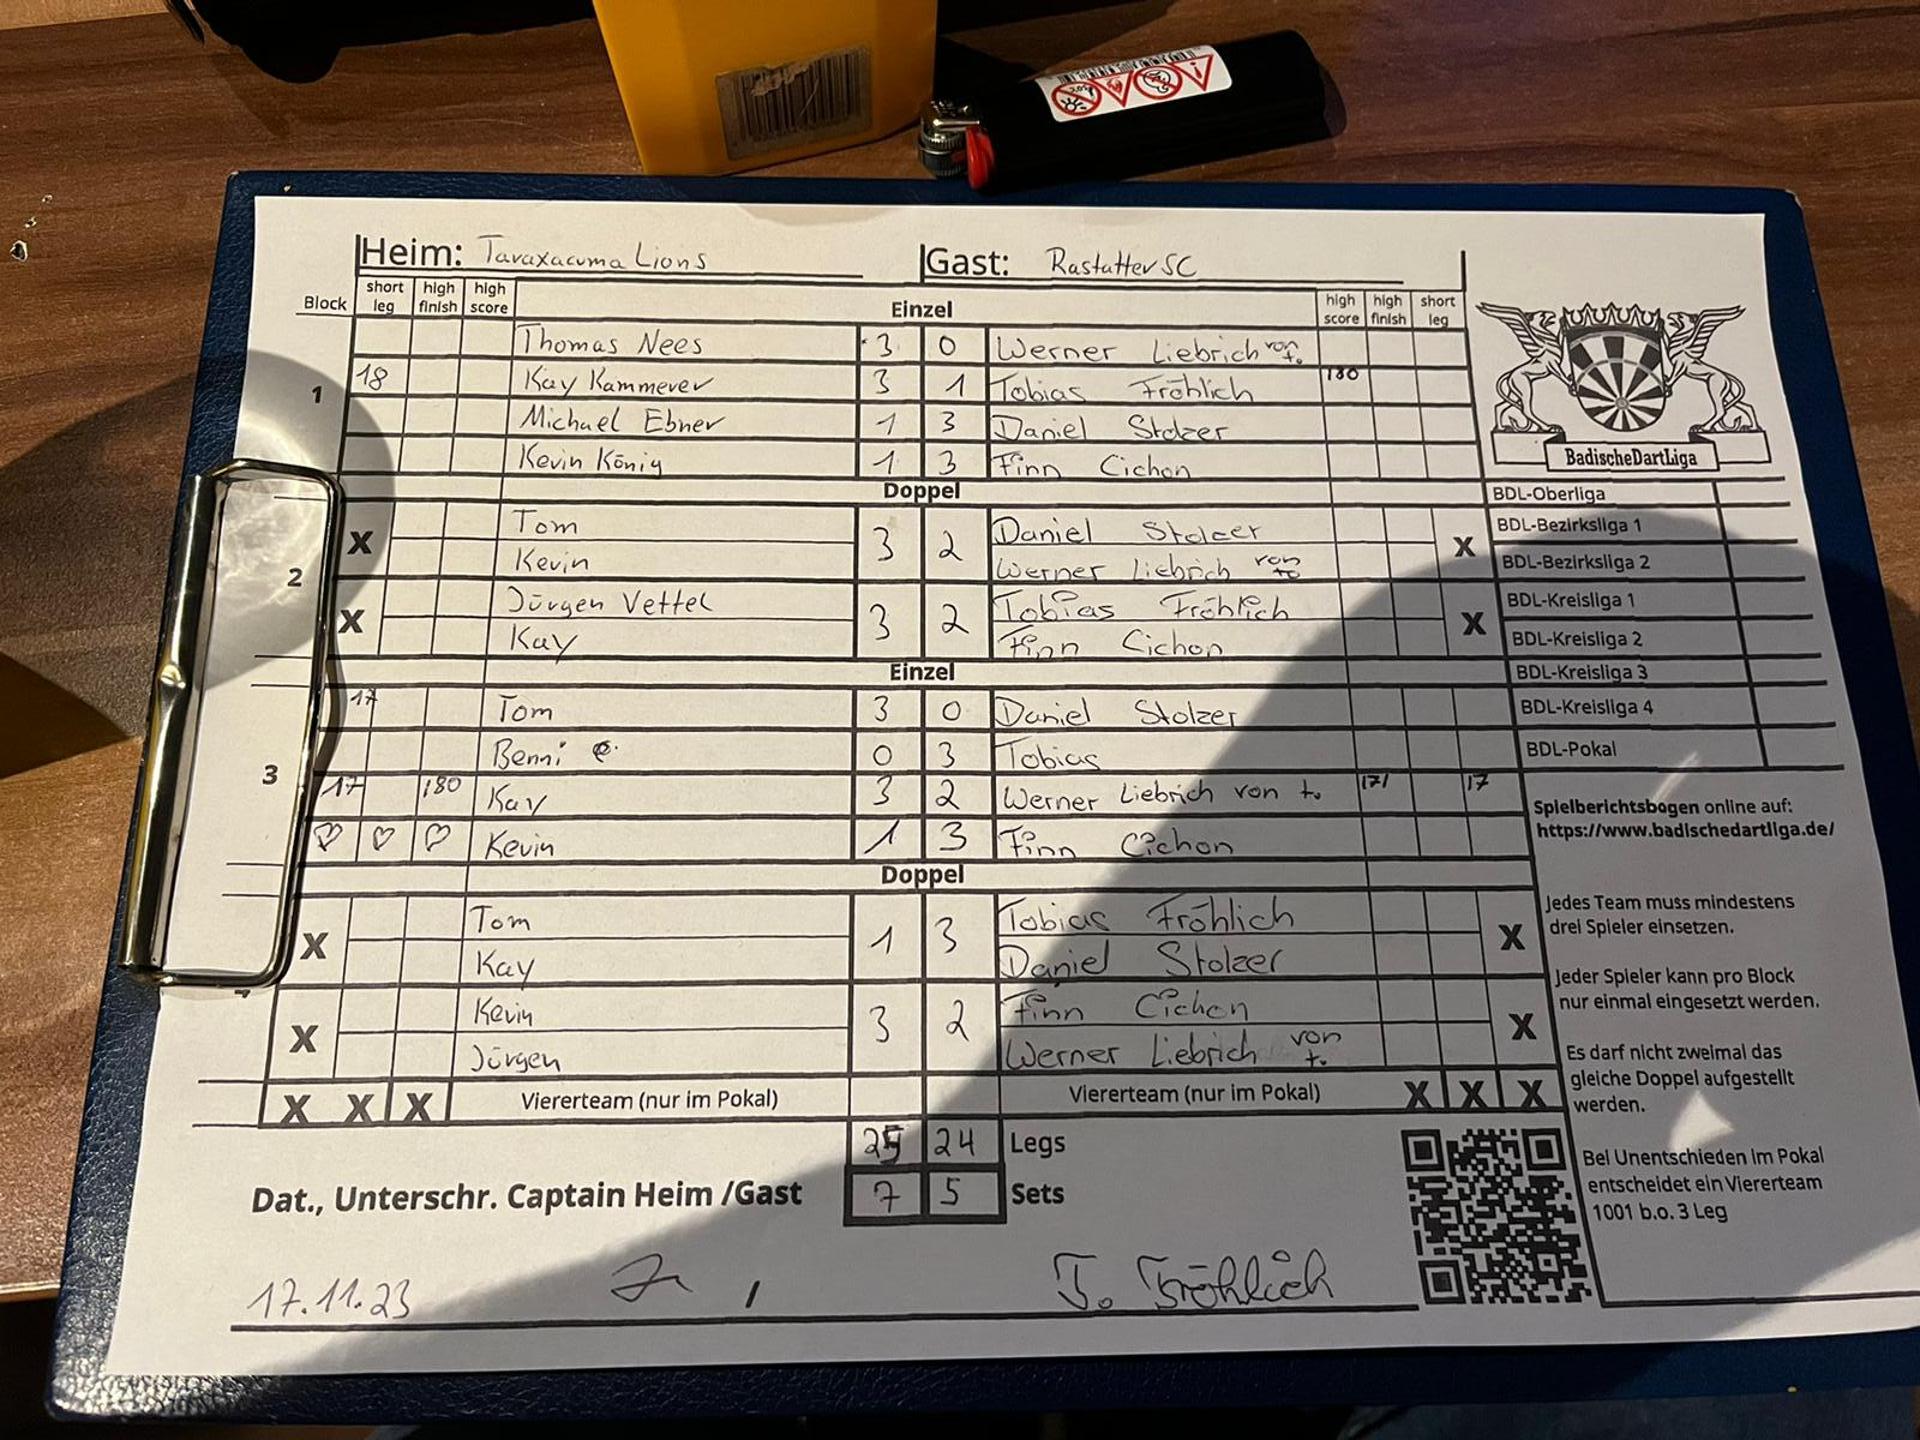 Heim: Taraxacuma Lions Gast: Rastatter SC
Block short leg high finish high score Einzel high score high finish short leg
Thomas Nees 3 0 Werner Liebrich von t.
1 18 Kay Kammerer 3 1 Tobias Fröhlich 180
Michael Ebner 1 3 Daniel Stolzer
Kevin König 1 3 Finn Cichon
BadischeDartLiga
Doppel
X Tom 3 2 Daniel Stolzer X
Kevin Werner Liebrich von to
2
X Jürgen Vettel 3 2 Tobias Fröhlich X
Kay Finn Cichon
Einzel
17 Tom 3 0 Daniel Stolzer
Benni 0 3 Tobias
3 17 180 Kay 3 2 Werner Liebrich von t. 171 17
Kevin 1 3 Finn Cichon
Doppel
X Tom 1 3 Tobias Fröhlich X
Kay Daniel Stolzer
X Kevin 3 2 Finn Cichon X
Jürgen Werner Liebrich von t.
X X X Viererteam (nur im Pokal) Viererteam (nur im Pokal) X X X
24 Legs
Dat., Unterschr. Captain Heim /Gast 7 5 Sets
17.11.23 T. Fröhlich
BDL-Oberliga
BDL-Bezirksliga 1
BDL-Bezirksliga 2
BDL-Kreisliga 1
BDL-Kreisliga 2
BDL-Kreisliga 3
BDL-Kreisliga 4
BDL-Pokal
Spielberichtsbogen online auf:
https://www.badischedartliga.de/
Jedes Team muss mindestens
drei Spieler einsetzen.
Jeder Spieler kann pro Block
nur einmal eingesetzt werden.
Es darf nicht zweimal das
gleiche Doppel aufgestellt
werden.
Bei Unentschieden im Pokal
entscheidet ein Viererteam
1001 b.o. 3 Leg